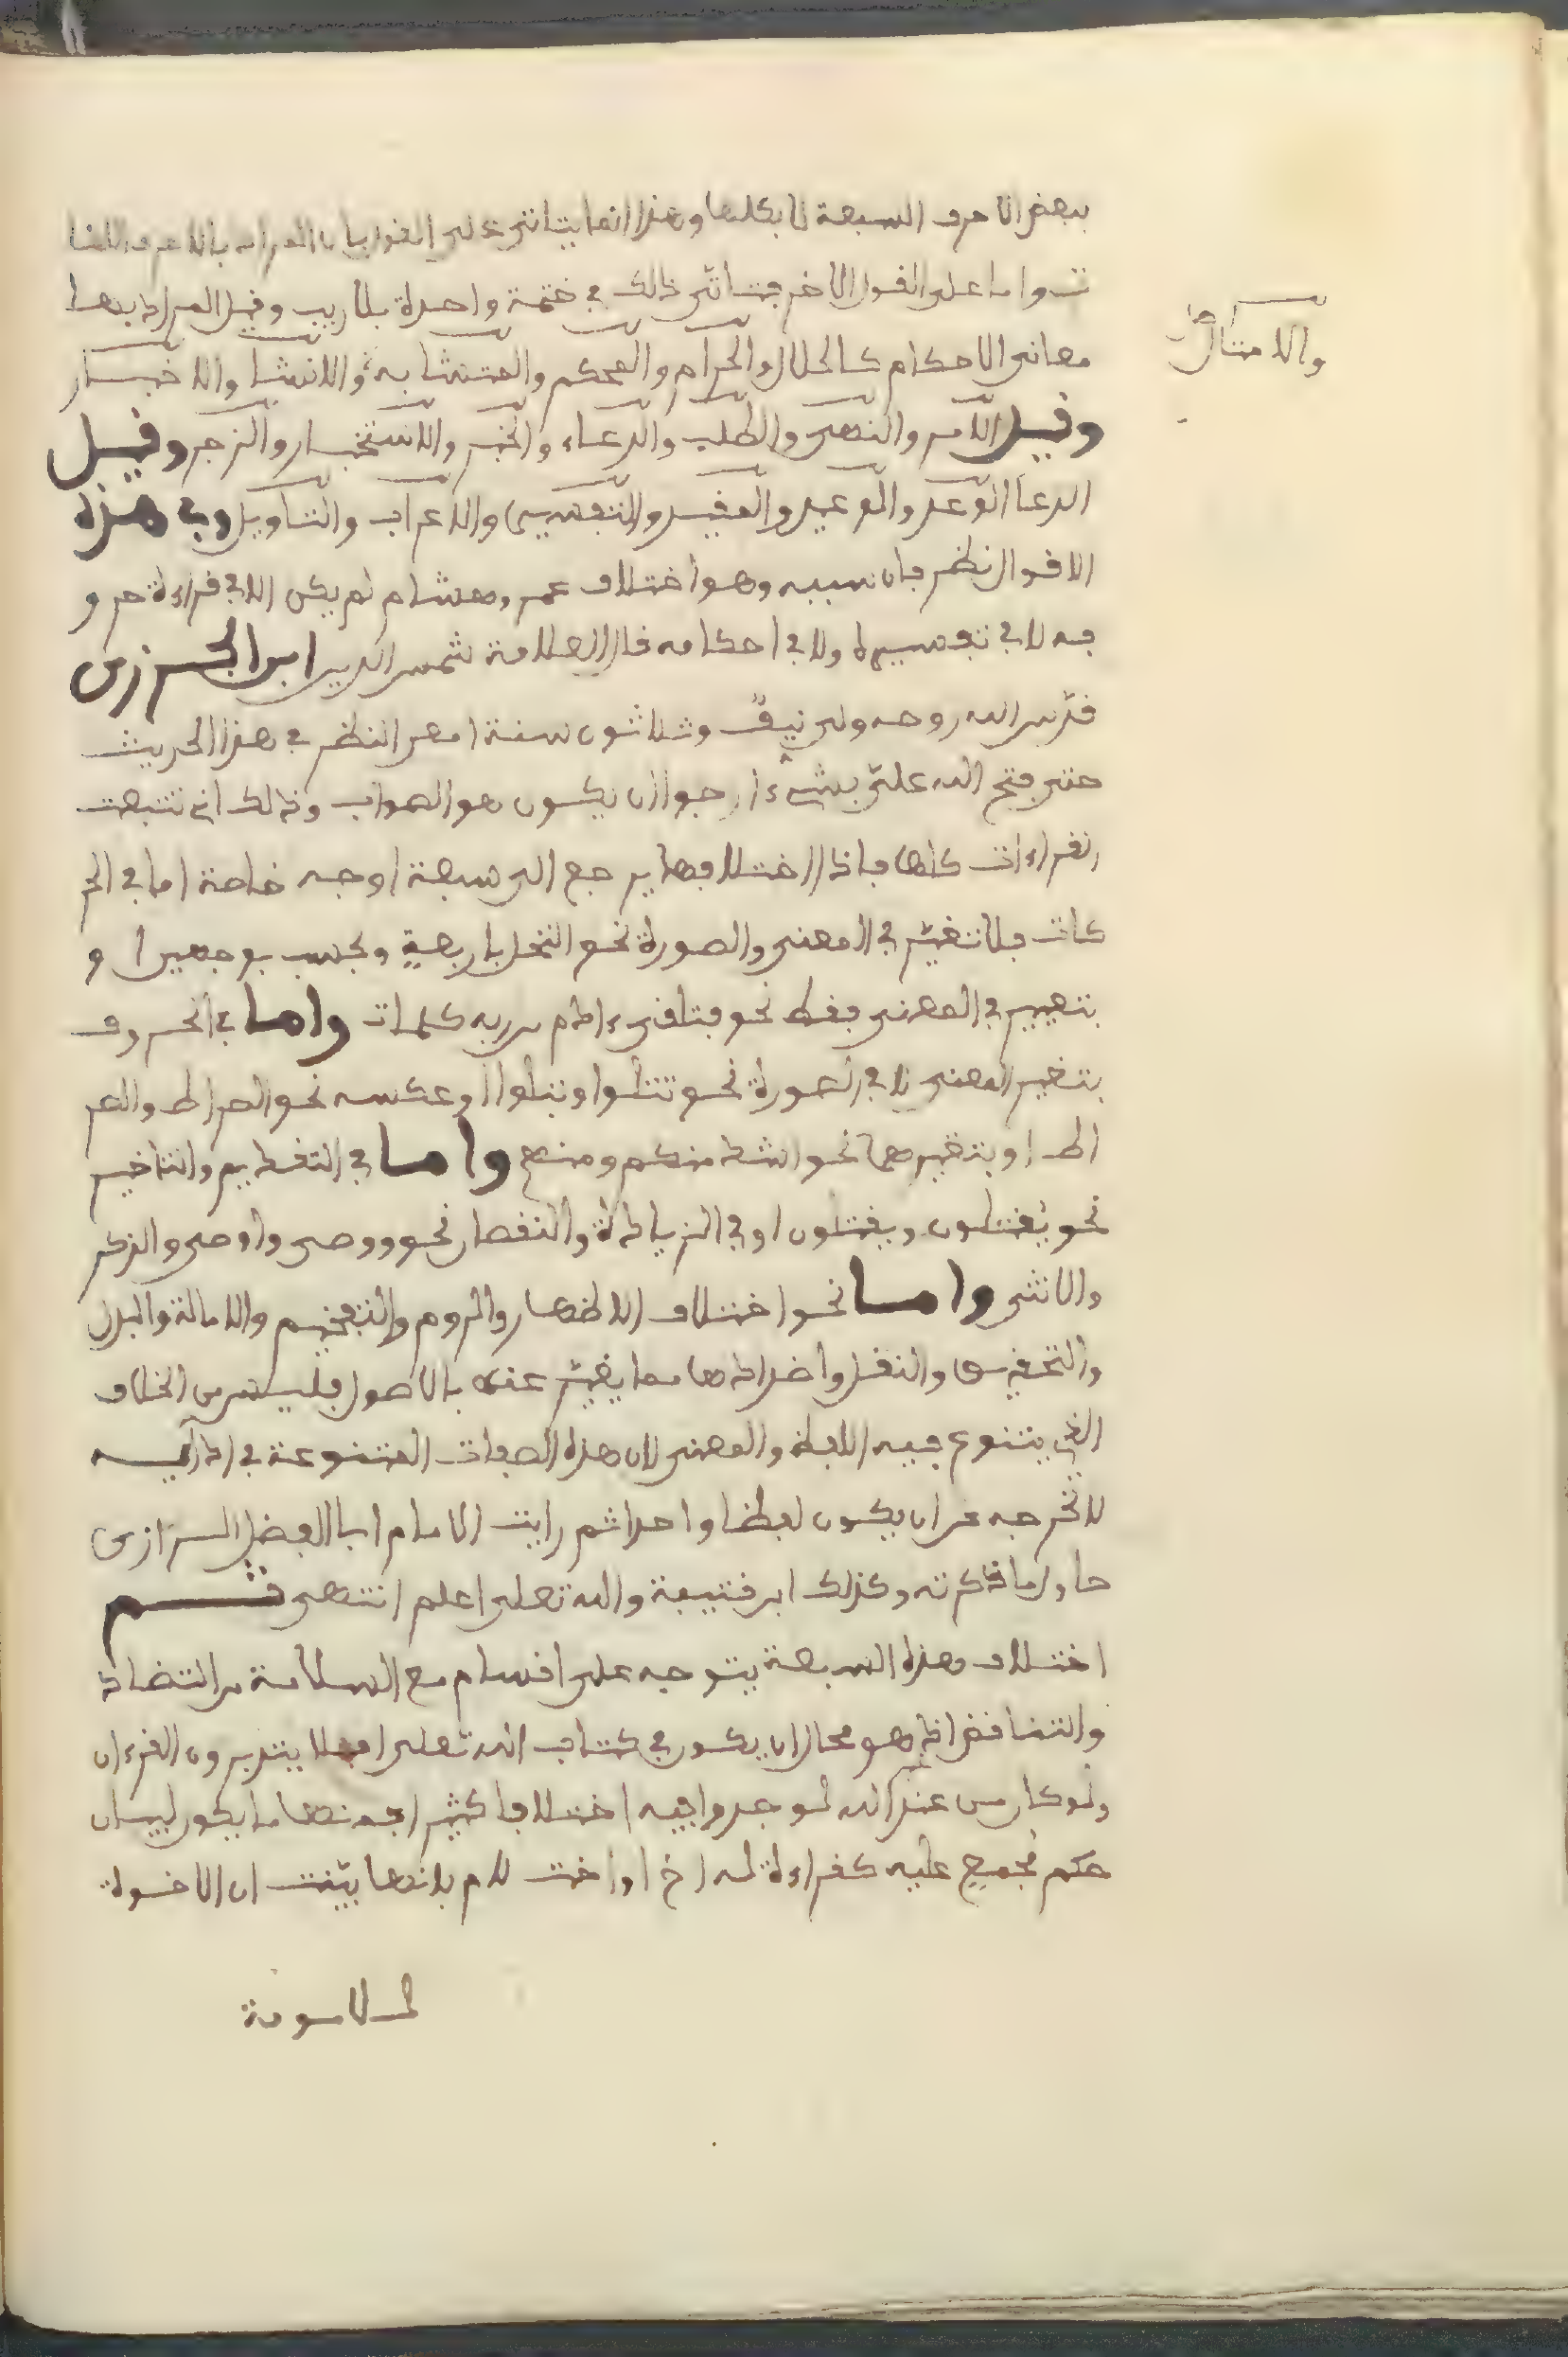 ببعض الاحرف السبعة لا بكلها وهذا انما يتاتى على القول بان المراد بالاحرف اللغا
ت واما على القول الاخر فيتاتى ذالك في ختمة واحدة بلا ريب وقيل المراد بها
معانى الاحكام كالحلال والحرام والمحكم والمتشابه والانشا والاخبار
والامثال صح
وقيل الامر والنهى والطلب والدعاء والخبر والاستخبار والزجر وقيل
الدعا الوعد والوعيد والتفسير والاعراب والتاويل وفى هذه
الاقوال نظر فان سببه وهو اختلاف عمر وهشام لم يكن الا فى قراءة حرو
فه لا فى تفسيره ولا فى احكامه قال العلامة شمس الدين ابن الجـزرى
قدس الله روحه ولى نيف وثلاثون سنة امعن النظر فى هذا الحديث
حتى فتح الله على بشىء ارجوا ان يكون هو الصواب وذالك انى تتبعت
القراءات كلها فاذا اختلافها يرجع الى سبعة اوجه خاصة اما فى الحر
كات بلا تغير فى المعنى والصورة نحو البخل باربعة ويحسب بوجهين او
بتغيير فى المعنى فقط نحو فتلقى ءادم من ربه كلمات واما فى الحروف
بتغير المعنى لا فى الصورة نحو تتلوا وتبلوا او عكسه نحو الصراط والسر
اط او بتغيرهما نحو اشد منكم ومنهم واما فى التقديم والتاخير
نحو يقتلون ويقتلون او فى الزيادة والنقصان نحو ووصى واوصى والذكر
والانثى واما نحو اختلاف الاظهار والروم والتفخيم والامالة والبدل
والتحقيق والنقل واضدادها مما يعبر عنه بالاصول فليس من الخلاف
الذى يتنوع فيه اللفظ والمعنى لان هذه الصفات المتنوعة فى ادايه
لا تخرجه عن ان يكون لفظا واحدا ثم رايت الامام ابا الفضل الرازى
حاول ما ذكرته وكذلك ابن قتيبة والله تعلى اعلم انتهى ثم
اختلاف هذه السبعة يتوجه على اقسام مع السلامة من التضاد
والتناقض اذ هو محال ان يكون فى كتاب الله تعلى افلا يتدبرون القرءان
ولو كان من عند غير الله لوجدوا فيه اختلافا كثيرا فمنها ما يكون لبيان
حكم مجمع عليه كقراءة له اخ او اخت لام فانها بينت ان الاخوة